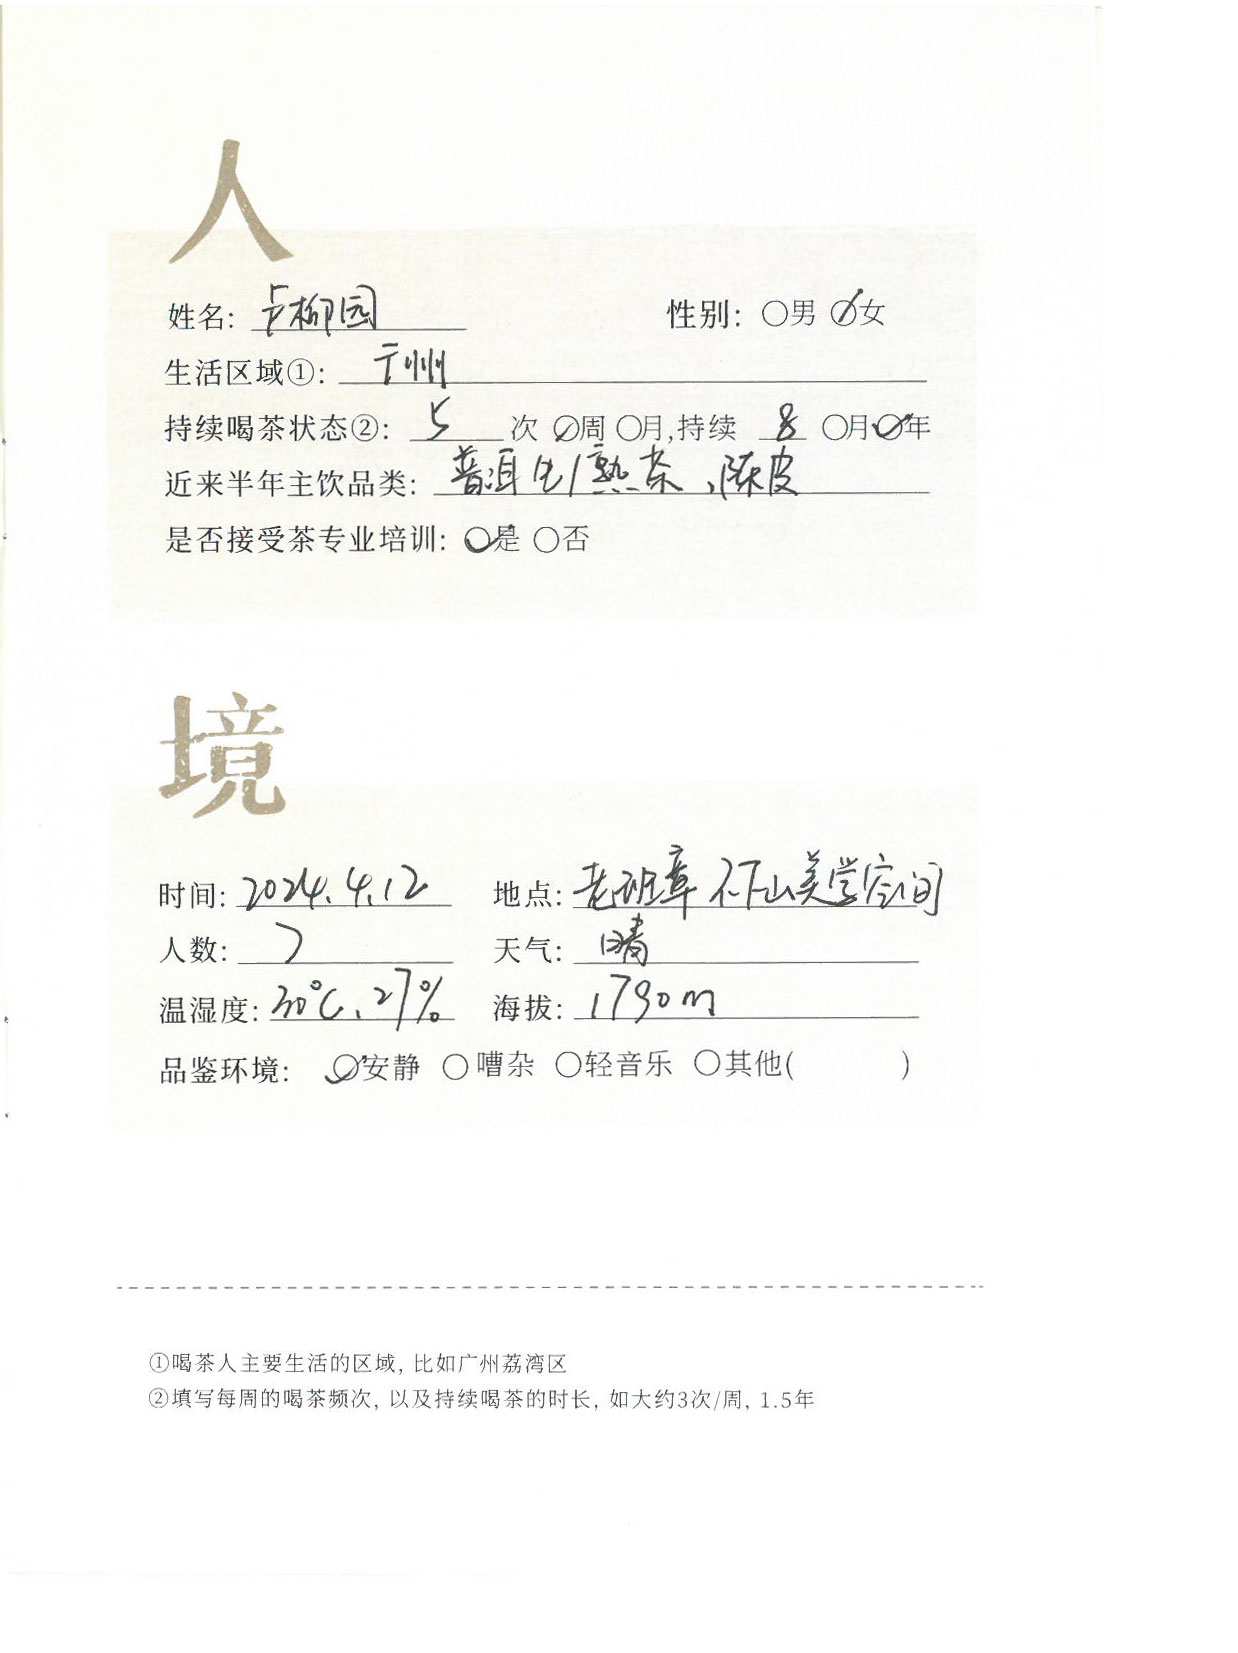 人
姓名: 卢柳园 性别: ○男 ○女
生活区域①: 广州
持续喝茶状态②: 5 次 ○周 ○月,持续 8 ○月 ○年
近来半年主饮品类: 普洱生/熟茶、陈皮
是否接受茶专业培训: ○是 ○否
境
时间: 2024.4.12 地点: 老班章不下山美学空间
人数: 7 天气: 晴
温湿度: 30℃、27% 海拔: 1790m
品鉴环境: ○安静 ○嘈杂 ○轻音乐 ○其他( )
①喝茶人主要生活的区域, 比如广州荔湾区
②填写每周的喝茶频次, 以及持续喝茶的时长, 如大约3次/周, 1.5年